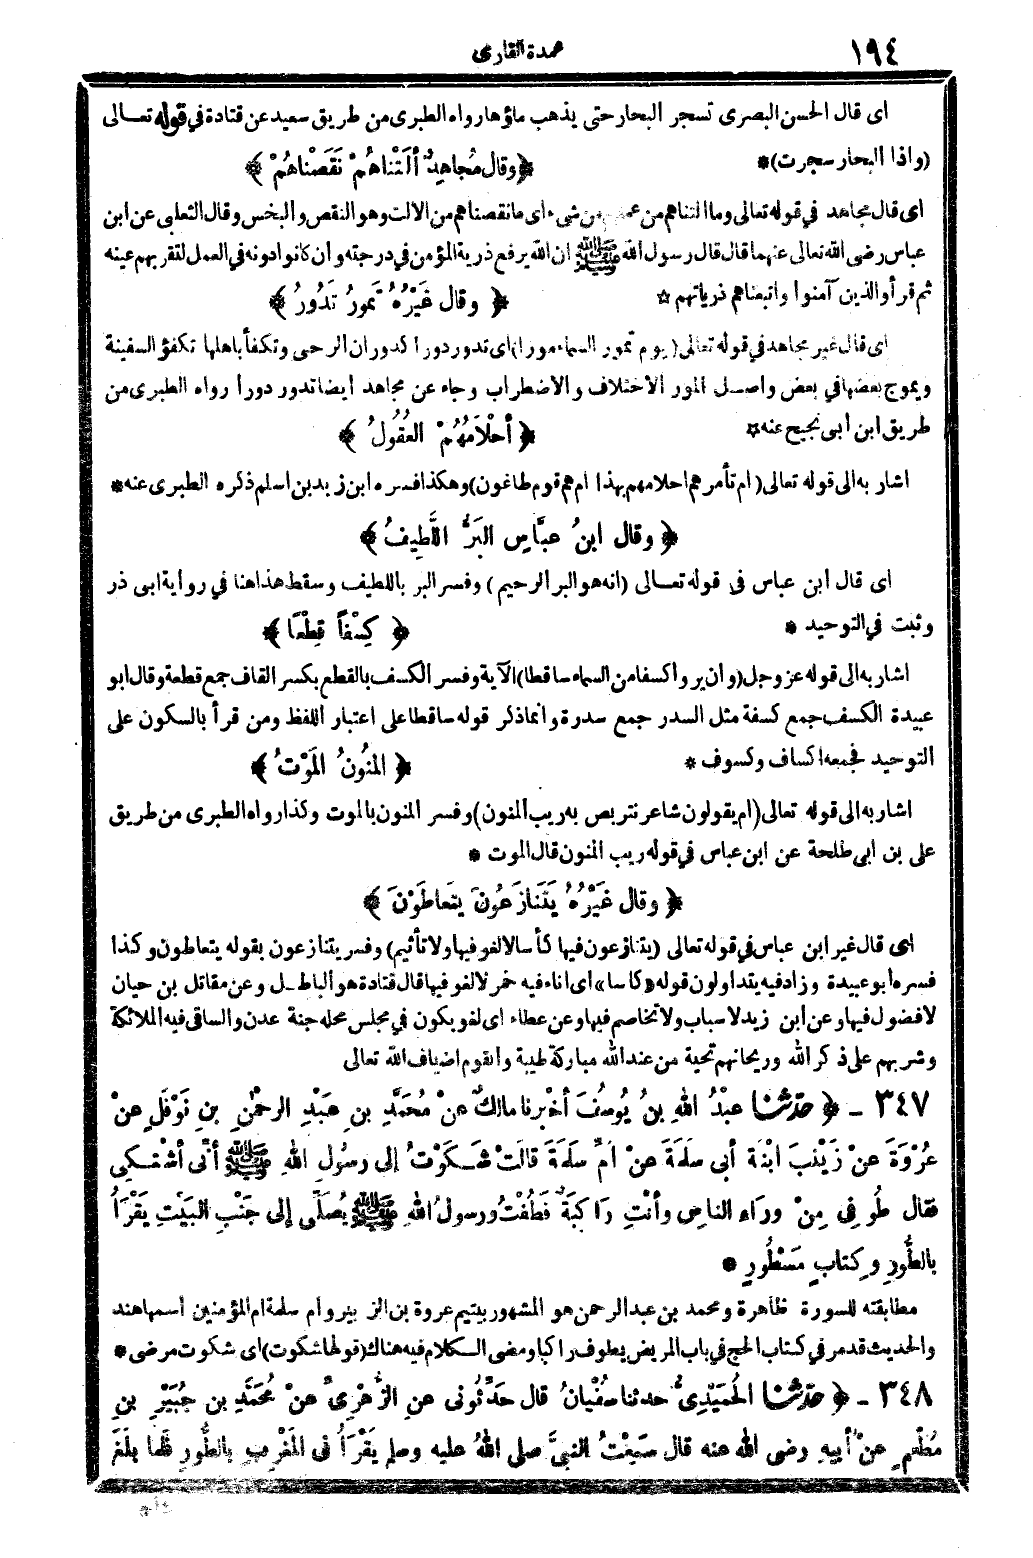 ١٩٤
عمدة القارى
اى قال الحسن البصرى تسجر البحار حتى يذهب ماؤها رواه الطبرى من طريق سعيد عن قتادة في قوله تعالى
(واذا البحار سجرت)*
﴿وقال مُجاهِدٌ ألَتْناهُمْ نَقَصْناهُمْ﴾
اى قال مجاهد في قوله تعالى وما التناهم من عملهم من شىء اى مانقصناهم من الالت وهو النقص والبخس وقال الثعلبى عن ابن
عباس رضى الله تعالى عنهما قال قال رسول الله ﷺ ان الله يرفع ذرية المؤمن في درجته وان كانوا دونه في العمل لتقر بهم عينه
ثم قرأ والذين آمنوا واتبعناهم ذرياتهم ☆
﴿ وقال غَيْرُهُ تَمورُ تَدُورُ ﴾
اى قال غير مجاهد في قوله تعالى (يوم تمور السماء مورا) اى تدور دورا كدوران الرحى وتكفأ باهلها تكفؤ السفينة
ويموج بعضها في بعض واصل المور الاختلاف والاضطراب وجاء عن مجاهد ايضا تدور دورا رواه الطبرى من
طريق ابن أبى نجيح عنه ☆
﴿ أحْلَامُهُمْ العُقُولُ ﴾
اشار به الى قوله تعالى (ام تأمرهم احلامهم بهذا ام هم قوم طاغون) وهكذا فسره ابن زيد بن اسلم ذكره الطبرى عنه*
﴿ وقال ابنُ عبَّاسٍ البَرُّ اللَّطِيفُ ﴾
اى قال ابن عباس فى قوله تعالى (انه هو البر الرحيم) وفسر البر باللطيف وسقط هذا هنا في رواية ابى ذر
وثبت في التوحيد *
﴿ كِسْفاً قِطْعًا ﴾
اشار به الى قوله عز وجل (وان يروا كسفا من السماء ساقطا) الآية وفسر الكسف بالقطع بكسر القاف جمع قطعة وقال ابو
عبيدة الكسف جمع كسفة مثل السدر جمع سدرة وانما ذكر قوله ساقطا على اعتبار اللفظ ومن قرأ بالسكون على
التوحيد فجمعه اكساف وكسوف *
﴿ المَنُونُ المَوْتُ ﴾
اشار به الى قوله تعالى (ام يقولون شاعر نتربص به ريب المنون) وفسر المنون بالموت وكذا رواه الطبرى من طريق
على بن ابى طلحة عن ابن عباس في قوله ريب المنون قال الموت *
﴿ وقال غَيْرُهُ يَتَنازَعُونَ يَتَعاطَوْنَ ﴾
اى قال غير ابن عباس في قوله تعالى (يتنازعون فيها كأسا لا لغو فيها ولا تأثيم) وفسر يتنازعون بقوله يتعاطون وكذا
فسره أبو عبيدة وزاد فيه يتداولون قوله «كاسا» اى اناء فيه خمر لا لغو فيها قال قتادة هو الباطل وعن مقاتل بن حيان
لا فضول فيها وعن ابن زيد لا سباب ولا تخاصم فيها وعن عطاء اى لغو يكون في مجلس محله جنة عدن والساقى فيه الملائكة
وشربهم على ذكر الله وريحانهم تحية من عند الله مباركة طيبة والقوم اضياف الله تعالى
٣٤٧ - ﴿ حدّثنا عبْدُ اللهِ بنُ يُوسُفَ أخْبرنا مالكٌ عنْ مُحَمَّدِ بنِ عَبْدِ الرحْمٰنِ بنِ نَوْفَلٍ عنْ
عُرْوَةَ عنْ زَيْنَبَ ابْنَةِ أبى سلَمَةَ عنْ أمِّ سلَمَةَ قالَتْ شَكَوْتُ إلى رسُولِ اللهِ ﷺ أنِّى أشْتَكِى
فقال طُوفِى مِنْ ورَاءِ الناسِ وأنْتِ رَاكِبَةٌ فَطُفْتُ ورسولُ اللهِ ﷺ يُصَلِّى إلى جَنْبِ البَيْتِ يَقْرَأُ
بالطُّورِ وكِتابٍ مَسْطُورٍ *
مطابقته للسورة ظاهرة ومحمد بن عبد الرحمن هو المشهور بيتيم عروة بن الزبير وام سلمة ام المؤمنين اسمها هند
والحديث قد مر في كتاب الحج في باب المريض يطوف راكبا ومضى الكلام فيه هناك (قولها شكوت) اى شكوت مرضى *
٣٤٨ - ﴿ حدّثنا الحُمَيْدِىُّ حدثنا سُفْيانُ قال حَدَّثُونِى عنِ الزُّهْرِىِّ عنْ مُحَمَّدِ بنِ جُبَيْرِ بنِ
مُطْعِمٍ عنْ أبِيهِ رضى اللهُ عنه قال سَمِعْتُ النبىَّ صلى اللهُ عليه وسلم يَقْرَأُ فى المَغْرِبِ بالطُّورِ فَلَمَّا بلَغَ